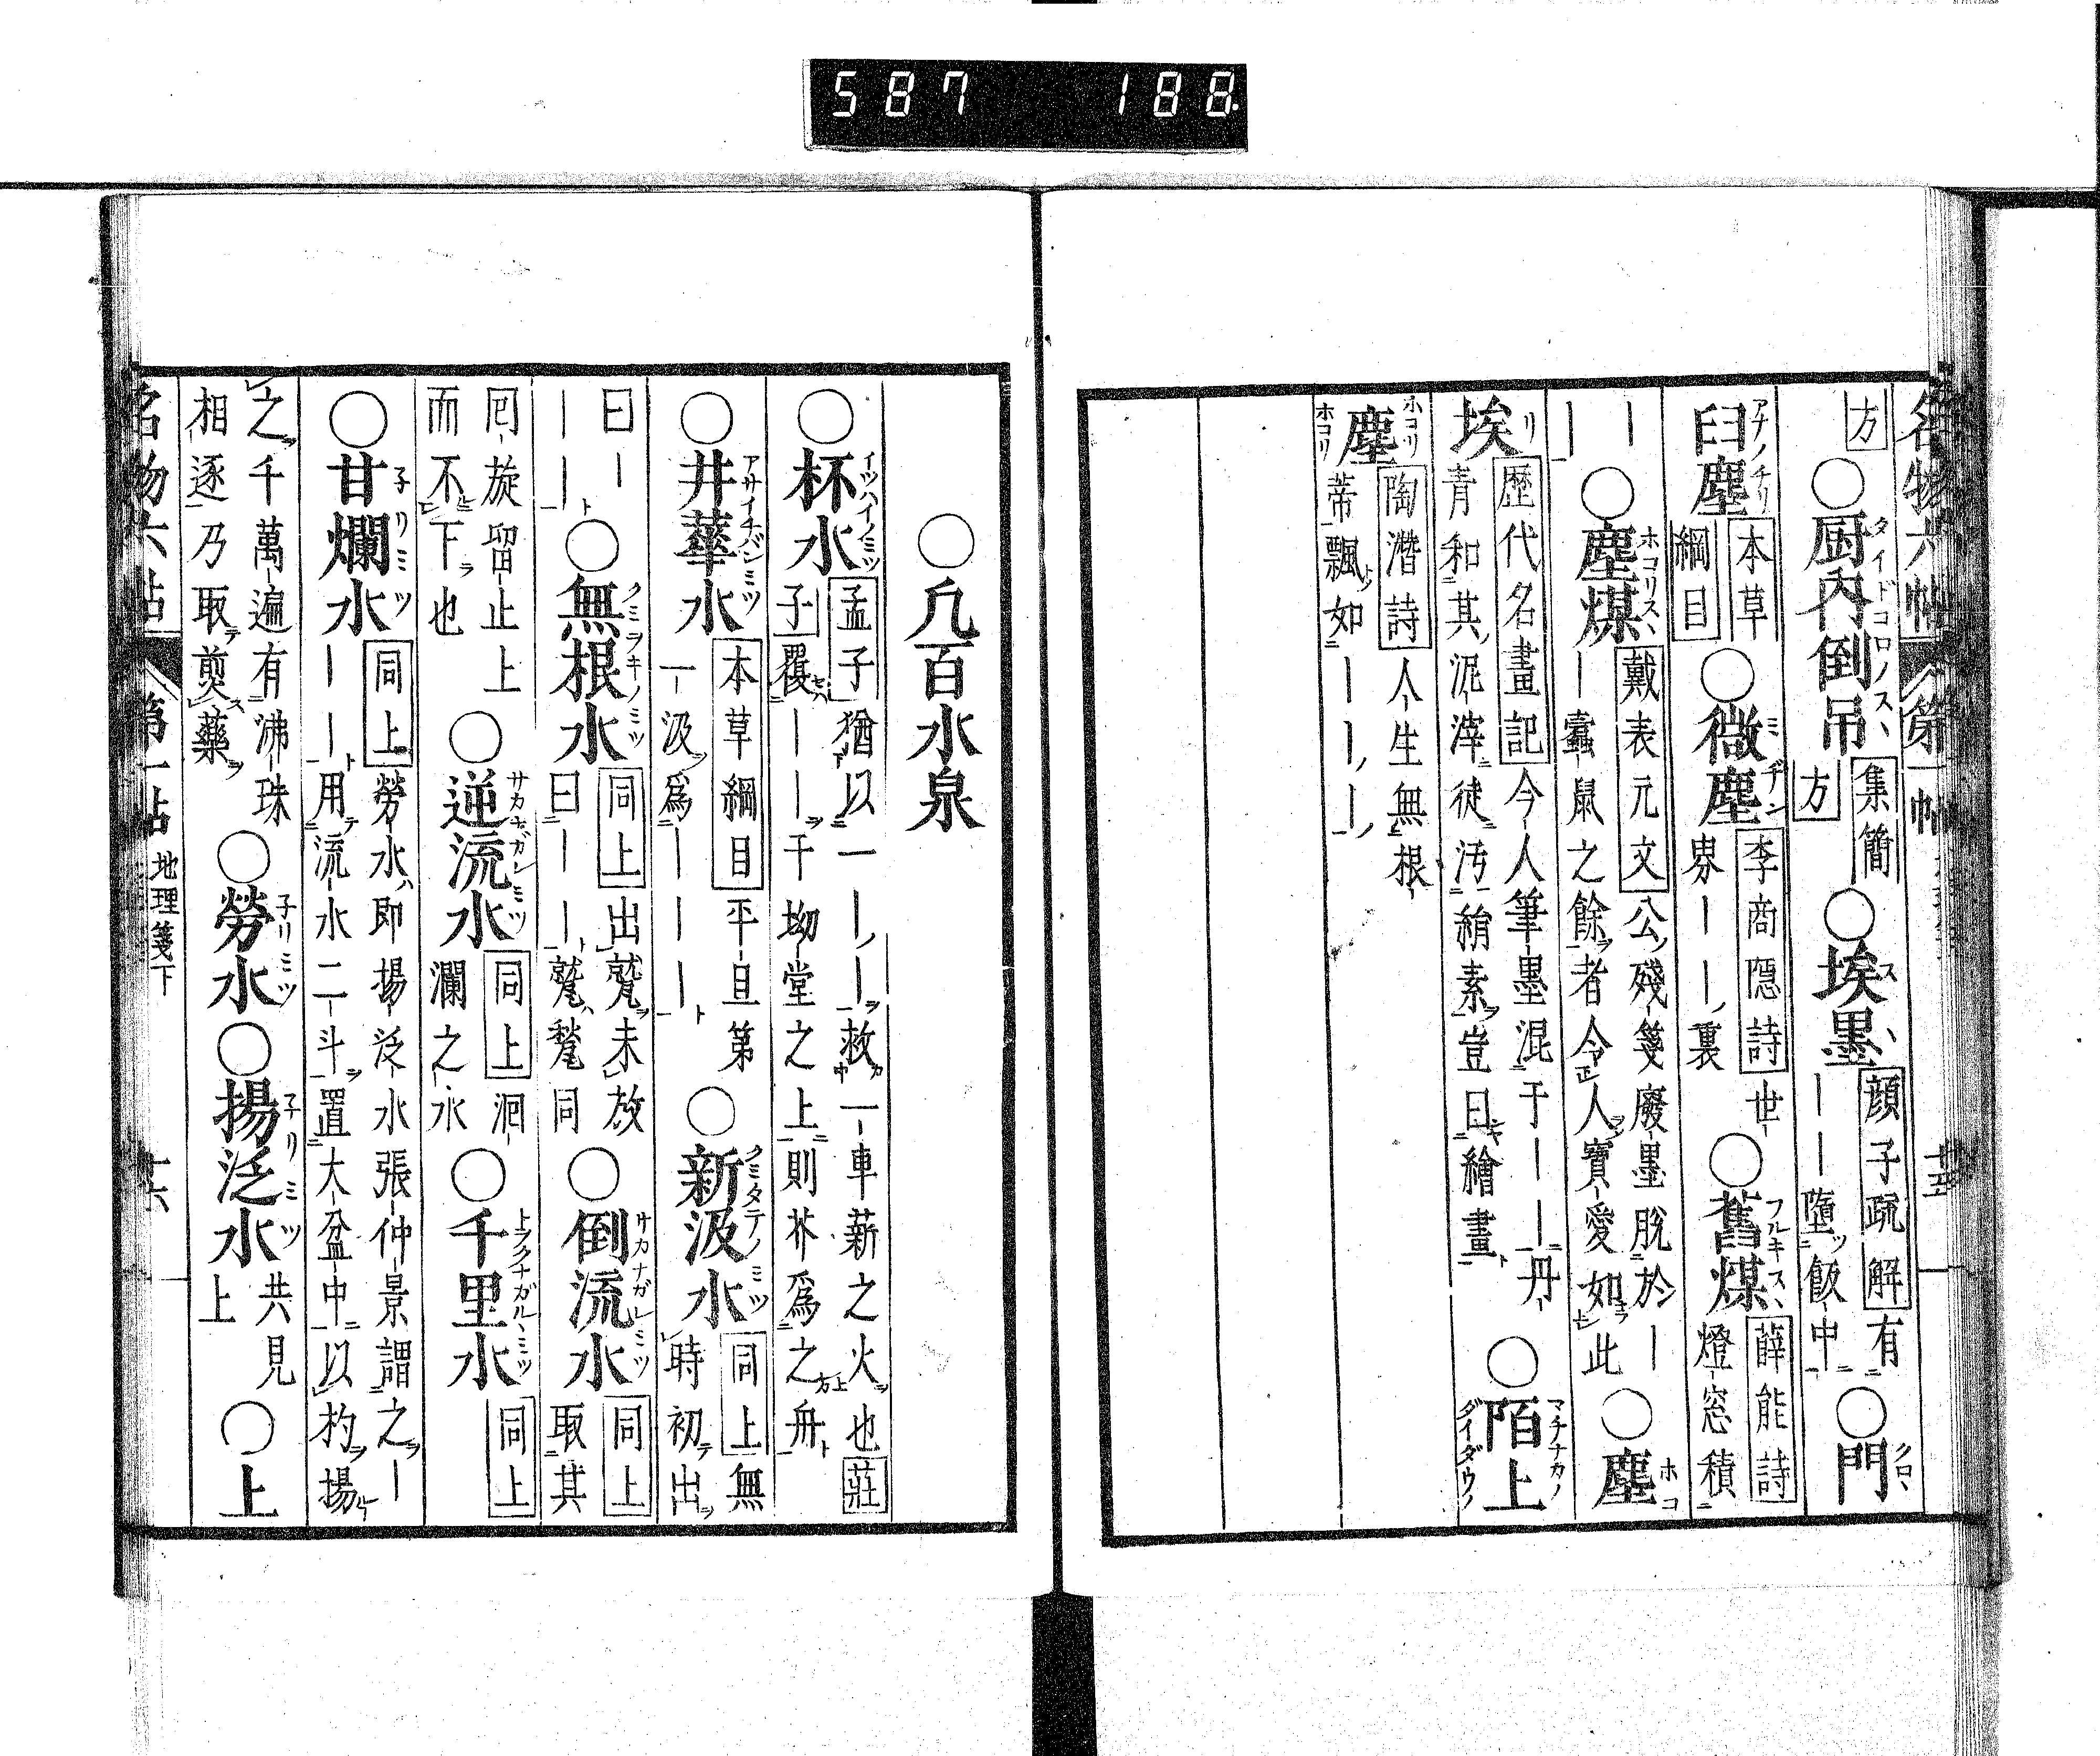 587 188.
名物六帖 第一帖
方 ○厨內倒吊 集簡方 ○埃墨 顔子疏解 有――墮飯中 ○門
臼塵 本草綱目 ○微塵 李商隱詩 世界――裏 ○舊煤 薛能詩 燈窓積
―― ○塵煤 戴表元文 公殘箋廢墨脫於――蠹鼠之餘者令人寶愛如此 ○塵
埃 歷代名畫記 今人筆墨混于――丹青和其泥滓徒汚絹素豈曰繪畫 ○陌上
塵 陶潛詩 人生無根蒂飄如―――
○凢百水泉
○杯水 孟子 猶以一――救一車薪之火也 莊子 覆――于坳堂之上則芥爲之舟
○井華水 本草綱目 平旦第一汲爲――― ○新汲水 同上 無時初出
曰――― ○無根水 同上 出甃未放曰―――甃甃同 ○倒流水 同上 取其
回旋留止上而不下也 ○逆流水 同上 洄瀾之水 ○千里水 同上
○甘爛水 同上 勞水卽揚泛水張仲景謂之―――用流水二斗置大盆中以杓揚
之千萬遍有沸珠相逐乃取煎藥 ○勞水 ○揚泛水 共見上 ○上
名物六帖 第一帖 地理箋下 十六